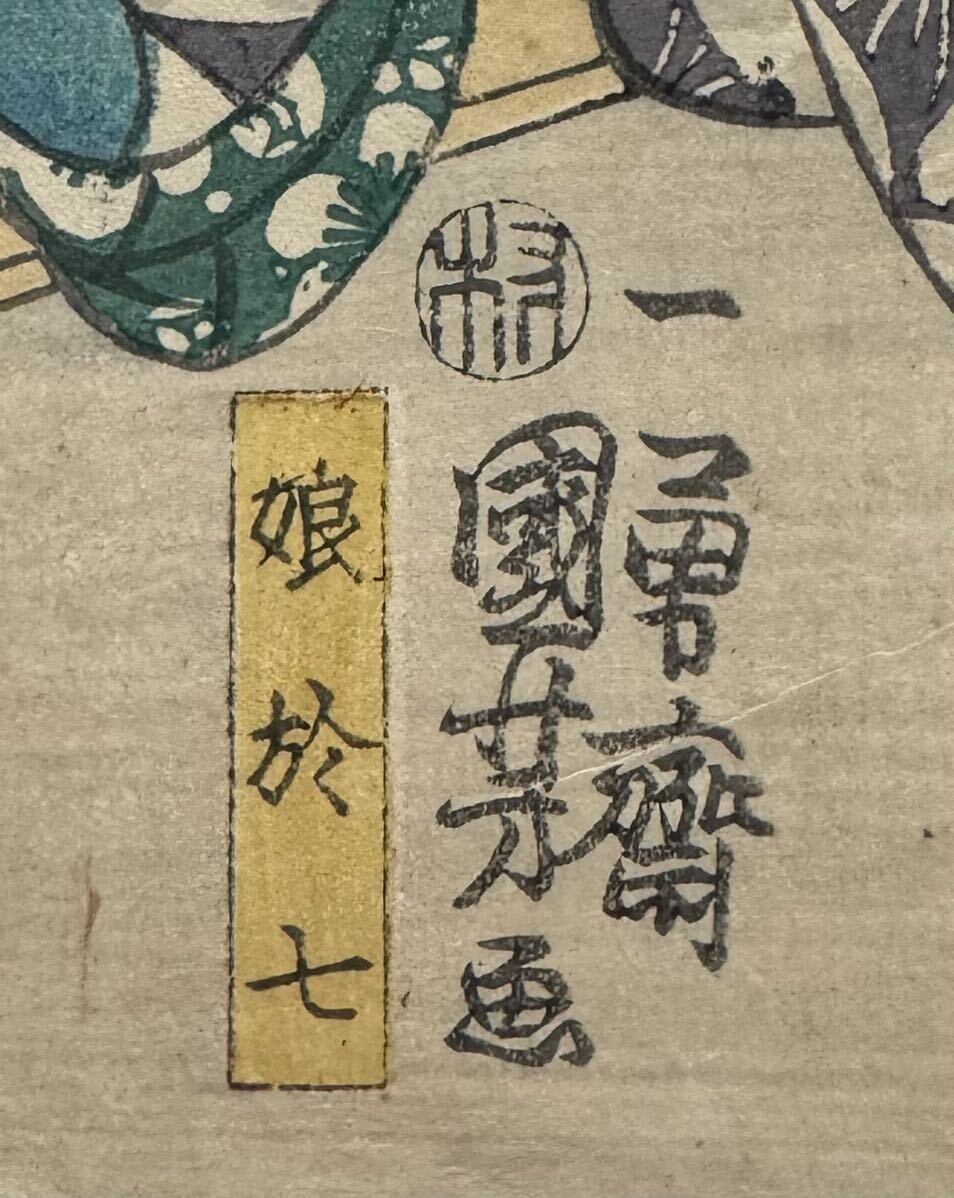 一勇齋
國芳画
娘於七